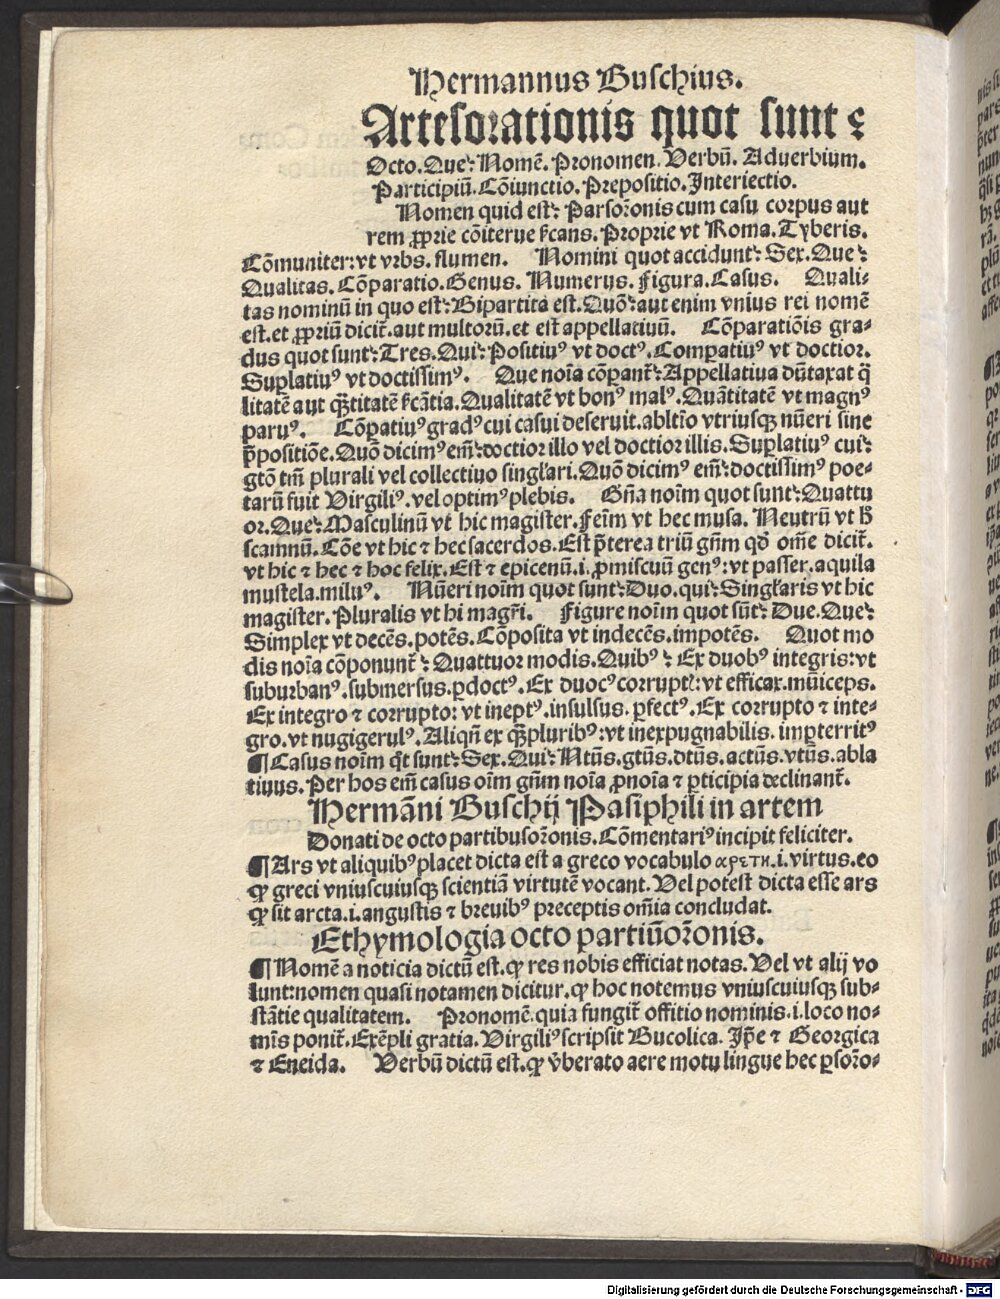 Hermannus Buschius.
Artesorationis quot sunt?
Octo. Que: Nomē. Pronomen. Verbū. Aduerbium.
Participiū. Cōiunctio. Prepositio. Interiectio.
Nomen quid est: Parsorōnis cum casu corpus aut
rem ꝓprie cōiterue sı̄cans. Proprie vt Roma. Tyberis.
Cōmuniter: vt vrbs. flumen. Nomini quot accidunt: Sex. Que:
Qualitas. Cōparatio. Genus. Numerus. Figura. Casus. Quali⸗
tas nominū in quo est: Bipartita est. Quō: aut enim vnius rei nomē
est. et ꝓpriū dicit̄. aut multorū. et est appellatiuū. Cōparatiōis gra⸗
dus quot sunt: Tres. Qui: Positiuꝰ vt doctꝰ. Comꝑatiuꝰ vt doctior.
Suꝑlatiuꝰ vt doctissimꝰ. Que noīa cōꝑant̄: Appellatiua dūtaxat q̄
litatē aut q̄titatē sı̄cātia. Qualitatē vt bonꝰ malꝰ. Quātitatē vt magnꝰ
paruꝰ. Cōꝑatiuꝰ gradꝰ cui casui deseruit. ablt̄io vtriusqꝫ nūeri sine
p̄positiōe. Quō dicimꝰ em̄: doctior illo vel doctior illis. Suꝑlatiuꝰ cui:
gtō tm̄ plurali vel collectiuo singl̄ari. Quō dicimꝰ em̄: doctissimꝰ poe⸗
tarū fuit Virgiliꝰ. vel optimꝰ plebis. Gn̄a noīm quot sunt: Quattu
or. Que: Masculinū vt hic magister. Feīm vt hec musa. Neutrū vt h̄
scamnū. Cōe vt hic ⁊ hec sacerdos. Est p̄terea triū gn̄m qd̄ om̄e dicit̄.
vt hic ⁊ hec ⁊ hoc felix. Est ⁊ epicenū. i. ꝓmiscuū genꝰ: vt passer. aquila
mustela. miluꝰ. Nūeri noīm quot sunt: Duo. qui: Singl̄aris vt hic
magister. Pluralis vt hi magr̄i. Figure noīm quot sūt: Due. Que:
Simplex vt decēs. potēs. Cōposita vt indecēs. impotēs. Quot mo
dis noīa cōponunt̄: Quattuor modis. Quibꝰ: Ex duobꝰ integris: vt
suburbanꝰ. submersus. ꝑdoctꝰ. Ex duocꝰ corrupt̄: vt efficax. mūiceps.
Ex integro ⁊ corrupto: vt ineptꝰ. insulsus. ꝑfectꝰ. Ex corrupto ⁊ inte⸗
gro. vt nugigerulꝰ. Aliqn̄ ex q̄ꝫpluribꝰ: vt inexpugnabilis. imꝑterritꝰ
¶ Casus noīm q̄t sunt: Sex. Qui: Nt̄us. gt̄us. dt̄us. act̄us. vt̄us. abla
tiuus. Per hos em̄ casus oīm gn̄m noīa ꝓnoīa ⁊ ꝑticipia declinant̄.
Hermāni Buschij Pasiphili in artem
Donati de octo partibusorōnis. Cōmentariꝰ incipit feliciter.
¶ Ars vt aliquibꝰ placet dicta est a greco vocabulo αρετη. i. virtus. eo
ꝙ greci vniuscuiusqꝫ scientiā virtutē vocant. Vel potest dicta esse ars
ꝙ sit arcta. i. angustis ⁊ breuibꝰ preceptis om̄ia concludat.
Ethymologia octo partiūorōnis.
¶ Nomē a noticia dictū est. ꝙ res nobis efficiat notas. Vel vt alij vo
lunt: nomen quasi notamen dicitur. ꝙ hoc notemus vniuscuiusqꝫ sub⸗
stātie qualitatem. Pronomē. quia fungit̄ offitio nominis. i. loco no⸗
mīs ponit̄. Exēpli gratia. Virgiliꝰ scripsit Bucolica. Ip̄e ⁊ Georgica
⁊ Eneida. Verbū dictū est. ꝙ v̄berato aere motu lingue hec ꝑsorō⸗
Digitalisierung gefördert durch die Deutsche Forschungsgemeinschaft - DFG